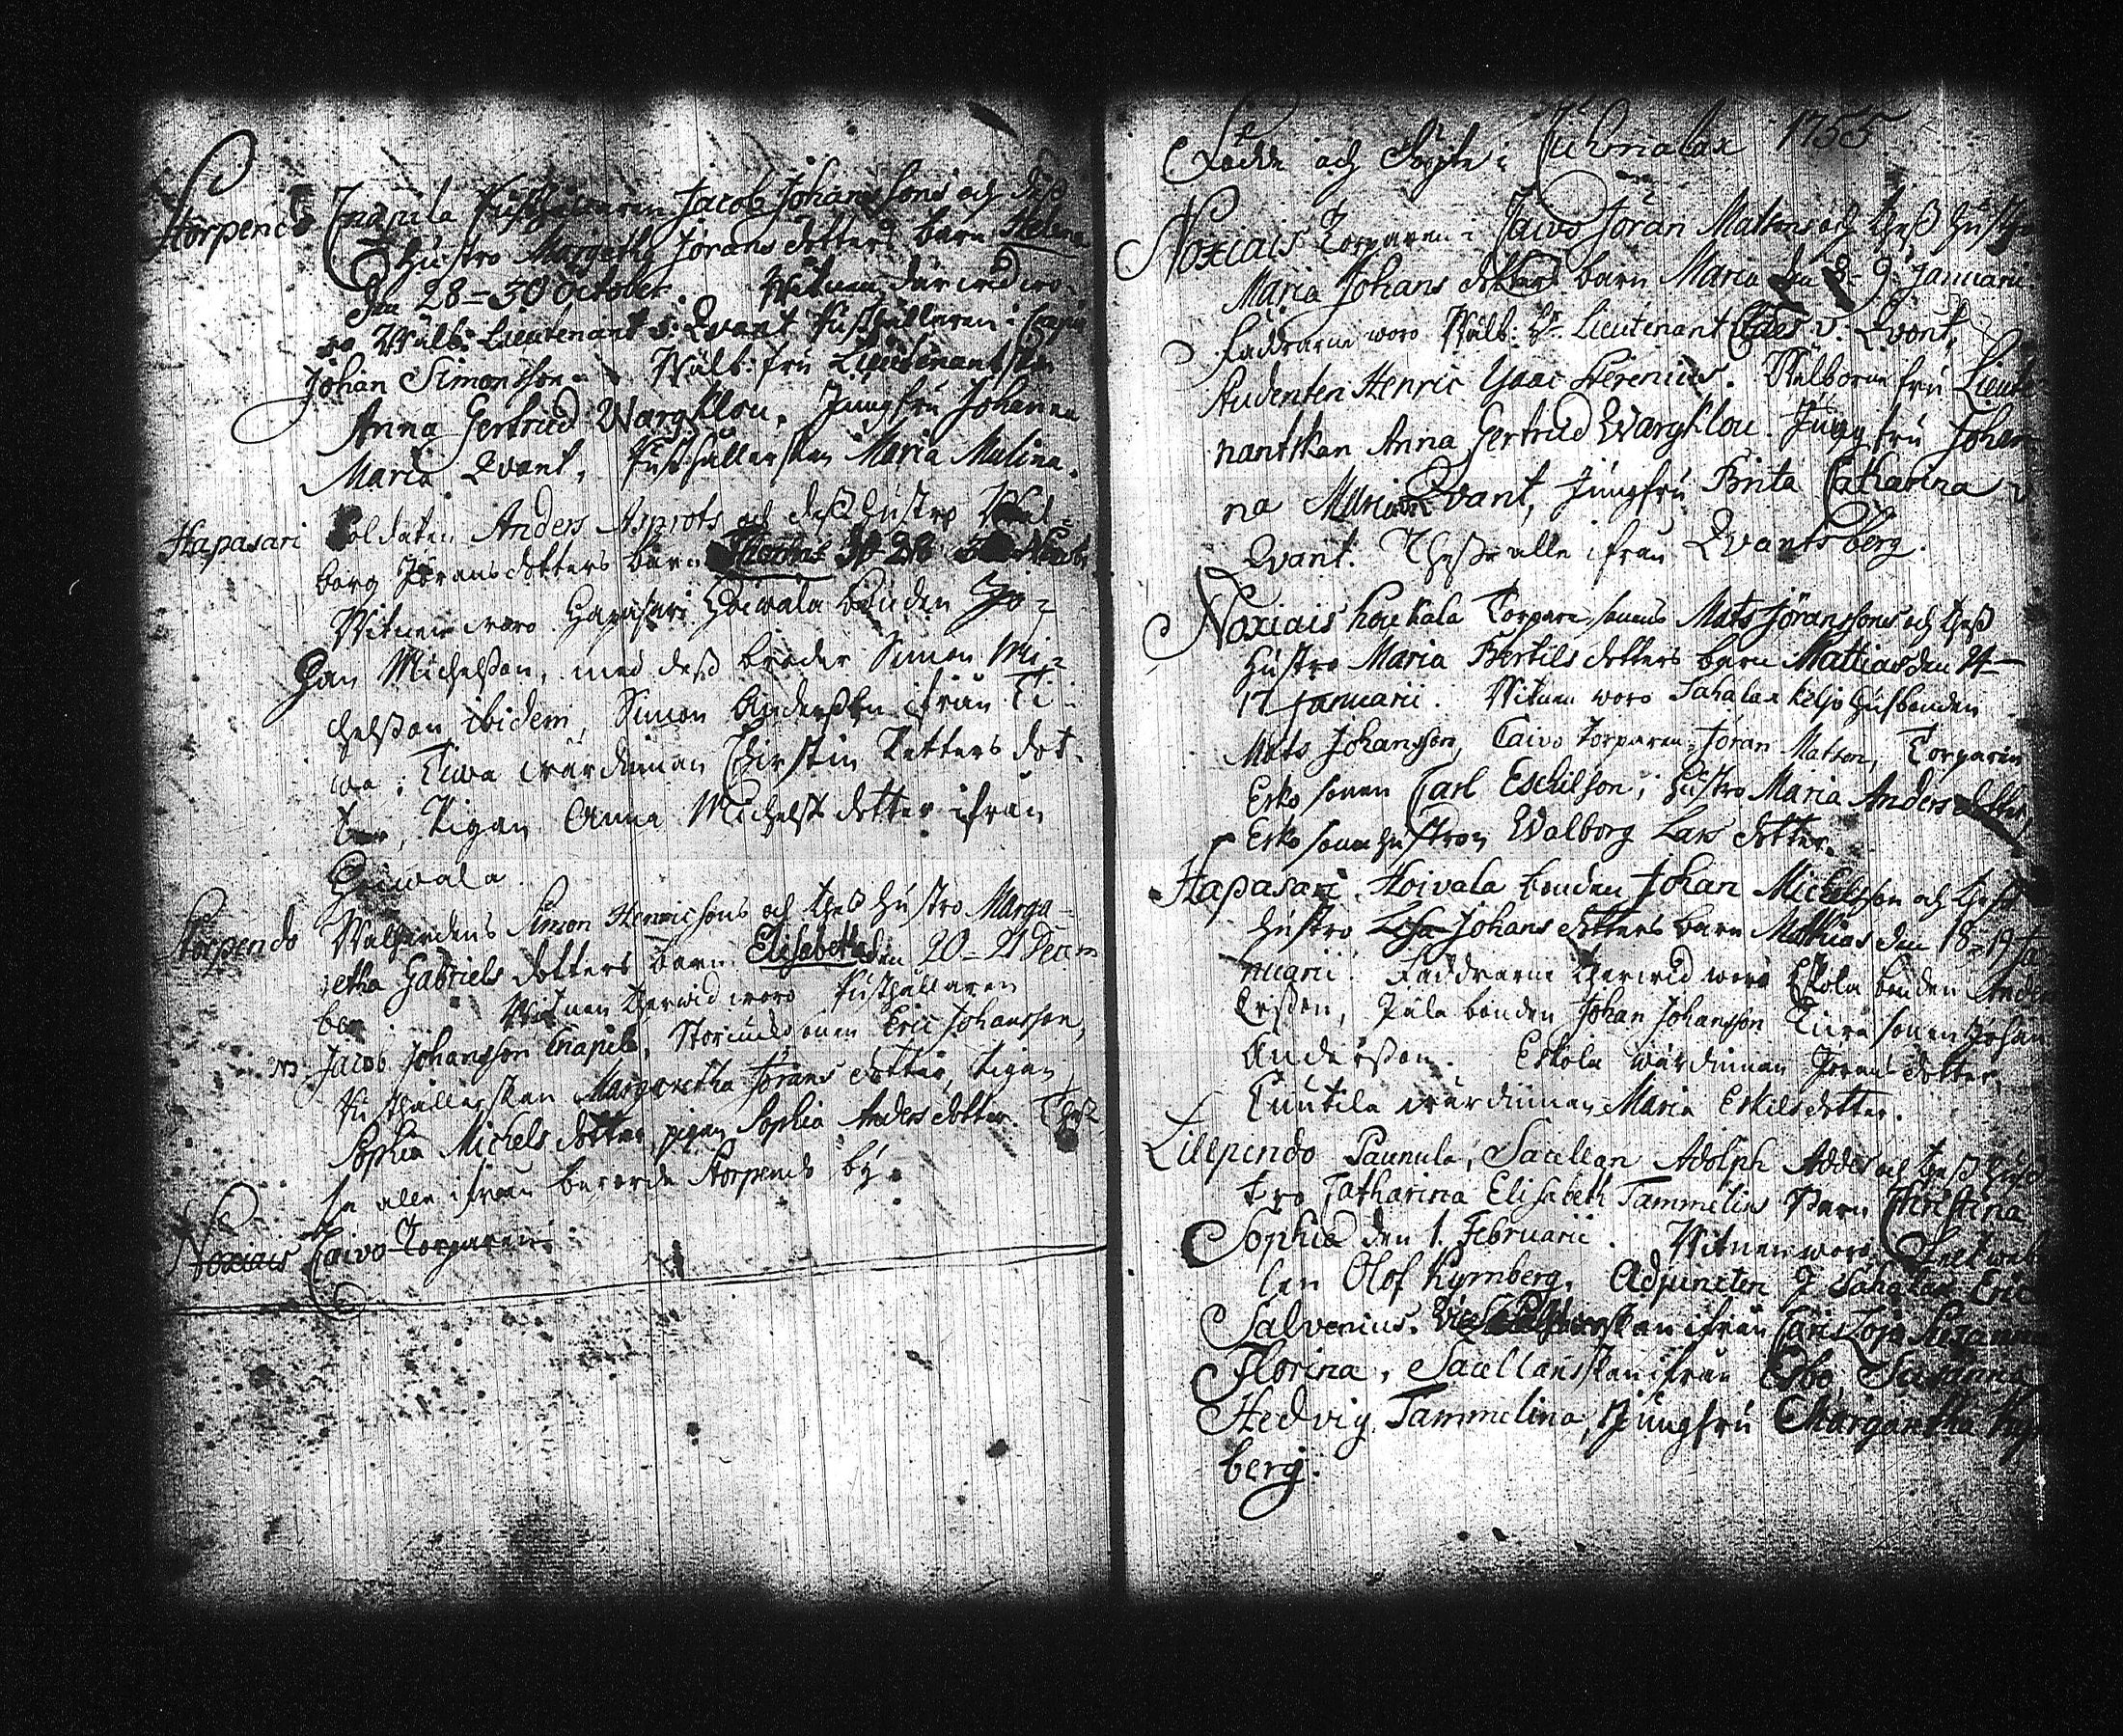 Storpendo Cnapila Rusthållaren Jacob Johanssons och dess
Hustro Margetha Jörans dotters barn Helena
den 28-30 October. Witnen där wid wo-
ro Wälb: Lieutenant v: Qvant Rusthållaren i
Johan Simonsson. Wälb: fru Lieutenantskan
Anna Gertrud Wargklou, Jungfru Johanna
Maria Qvant, Rusthållerskan Maria Malina.
Hapasari Soldaten Anders Asprots och dess Hustro Wal-
borg Jörans dotters barn 28
Witnen woro Hapasari Hoiwala bonden Jo-
han Michelsson, med dess broder Simon Mi-
chelsson ibidem, Simon Andersson ifrån Ti-
wa: Tiwa wärdinnan Christin Petters dot-
ter, Pigan Anna Michels dotter ifrån
Hoiwala
Storpendo Simon Henricsons och thes Hustro Marga-
retha Gabriels dotters barn Elisabetha den 20-21 Decem
ber. Witnen therwid woro Rusthållaren
Jacob Johansson Cnapila, Eric Johansson,
Rusthållerskan Margaretha Jörans dotter, Pigan
Sophia Michels dotter, pigan Sophia Anders dotter Thes-
se alle ifrån berörde Storpendo by.
Noxiais Caivo Torparen
Födde och Döpte i Cuhmalax 1755
Noxiais Torparen i Caivo Jöran Matsons och thess Hustro
Maria Johans dotters barn Maria den 8-9 Januarii
Faddrarne woro Wälb: Hr Lieutenant Claes v. Qvant,
Studenten Henric Ysaac Herenius. Wälborne fru Lieute
nantskan Anna Gertrud Wargklou. Jungfru Johan
na Maria Qvant, Jungfru Brita Catharina v
Qvant. Thesse alle ifrån Qvantsberg.
Noxiais Koukala Torpare sonens Mats Jöranssons och thess
Hustro Maria Bertils dotters barn Mattias den 14-
17 Januarii. Witnen woro Sahalax Keljo Husbonden
Mats Johansson, Caivo torparen Jöran Matson, Torparen
Esko sonen Carl Eschilson, Hustro Maria Anders dotter,
Esko sonen hustron Walborg Lars dotter.
Hapasari Hoivala bonden Johan Michelsson och thess
Hustro Lisa Johans dotters barn Mathias den 18-19 Ja
nuarii. Faddrarne therwid woro Eskola bonden Anders
Ersson, Pula bonden Johan Johansson sonen Johan
Andersson. Eskola wärdinnan Jörans dotter,
Tuutila wärdinnan Maria Eskils dotter.
Lillpendo Paunula, Sacellan Adolph Addes och thess Hus
tro Catharina Elisabeth Tammelins Barn Christina
Sophia den 1. Februarii. Witnen woro
len Olof Kymberg, Adjuncten I Sahalax Eric
Salvenius. ifrån Caris Loja Susanna
Florina, Sacellanskan ifrån Esbo Susanna
Hedvig Tammelina, Jungfru Margaretha Kym
berg.